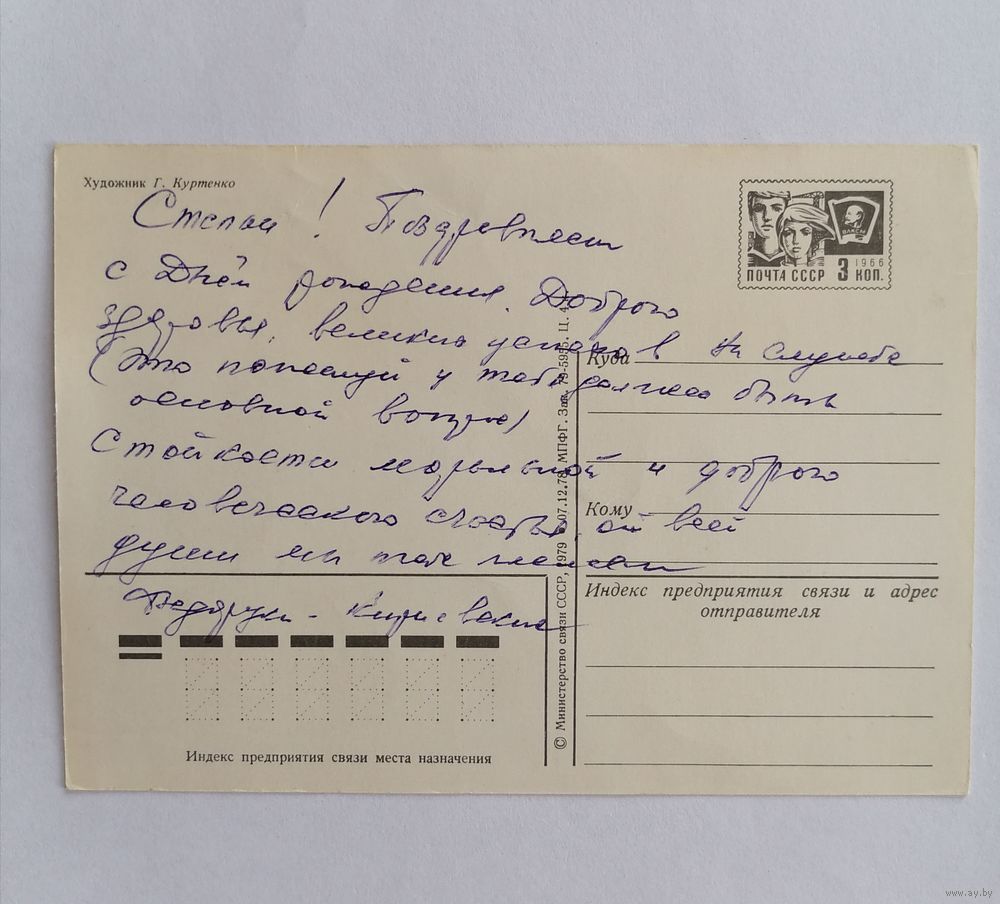 Художник Г. Куртенко
ПОЧТА СССР 3 КОП.
1966
ВЛКСМ
Степан! Поздравляем
с Днём рождения. Доброго
здоровья, великих успехов на службе
(Это пожалуй у тебя должно быть
основной вопрос)
Стойкости моральной и доброго
человеческого счастья, от всей
души мы тебе желаем
Куда
Кому
Индекс предприятия связи и адрес
отправителя
Индекс предприятия связи места назначения
© Министерство связи СССР, 1979 07.12.78. МПФГ. Зак. 79-5955. Ц. 4
www.ay.by